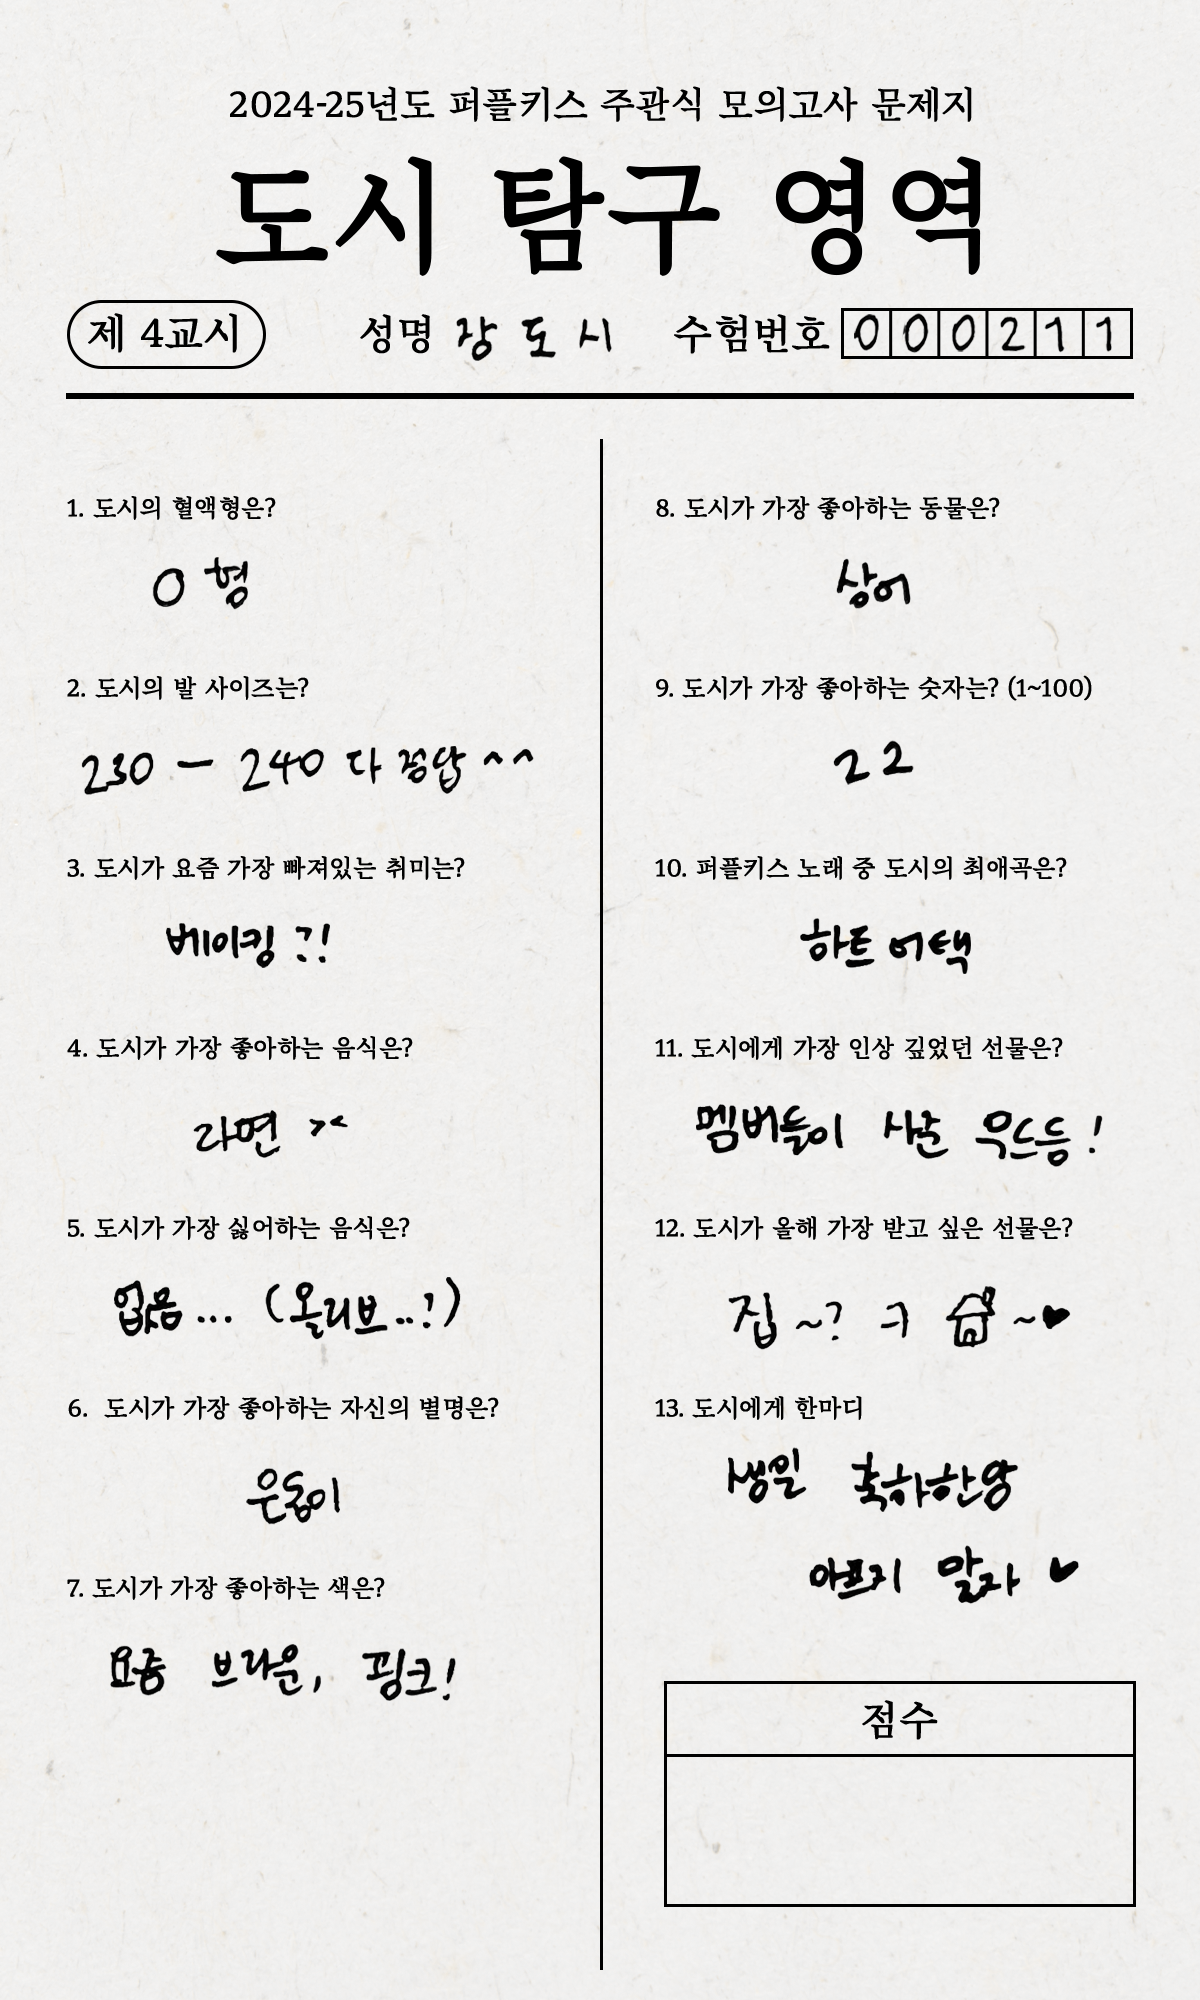 2024-25년도 퍼플키스 주관식 모의고사 문제지
도시 탐구 영역
제 4교시
성명 장도시 수험번호 000211
1. 도시의 혈액형은?
O형
2. 도시의 발 사이즈는?
230 - 240 다 정답 ^^
3. 도시가 요즘 가장 빠져있는 취미는?
베이킹 ?!
4. 도시가 가장 좋아하는 음식은?
라면 ><
5. 도시가 가장 싫어하는 음식은?
없음... (올리브..?)
6. 도시가 가장 좋아하는 자신의 별명은?
은동이
7. 도시가 가장 좋아하는 색은?
요즘 브라운, 핑크!
8. 도시가 가장 좋아하는 동물은?
상어
9. 도시가 가장 좋아하는 숫자는? (1~100)
22
10. 퍼플키스 노래 중 도시의 최애곡은?
하트 어택
11. 도시에게 가장 인상 깊었던 선물은?
멤버들이 사준 우드등!
12. 도시가 올해 가장 받고 싶은 선물은?
집~? ㅋ ~♥
13. 도시에게 한마디
생일 축하한당
아프지 말자 ♥
점수